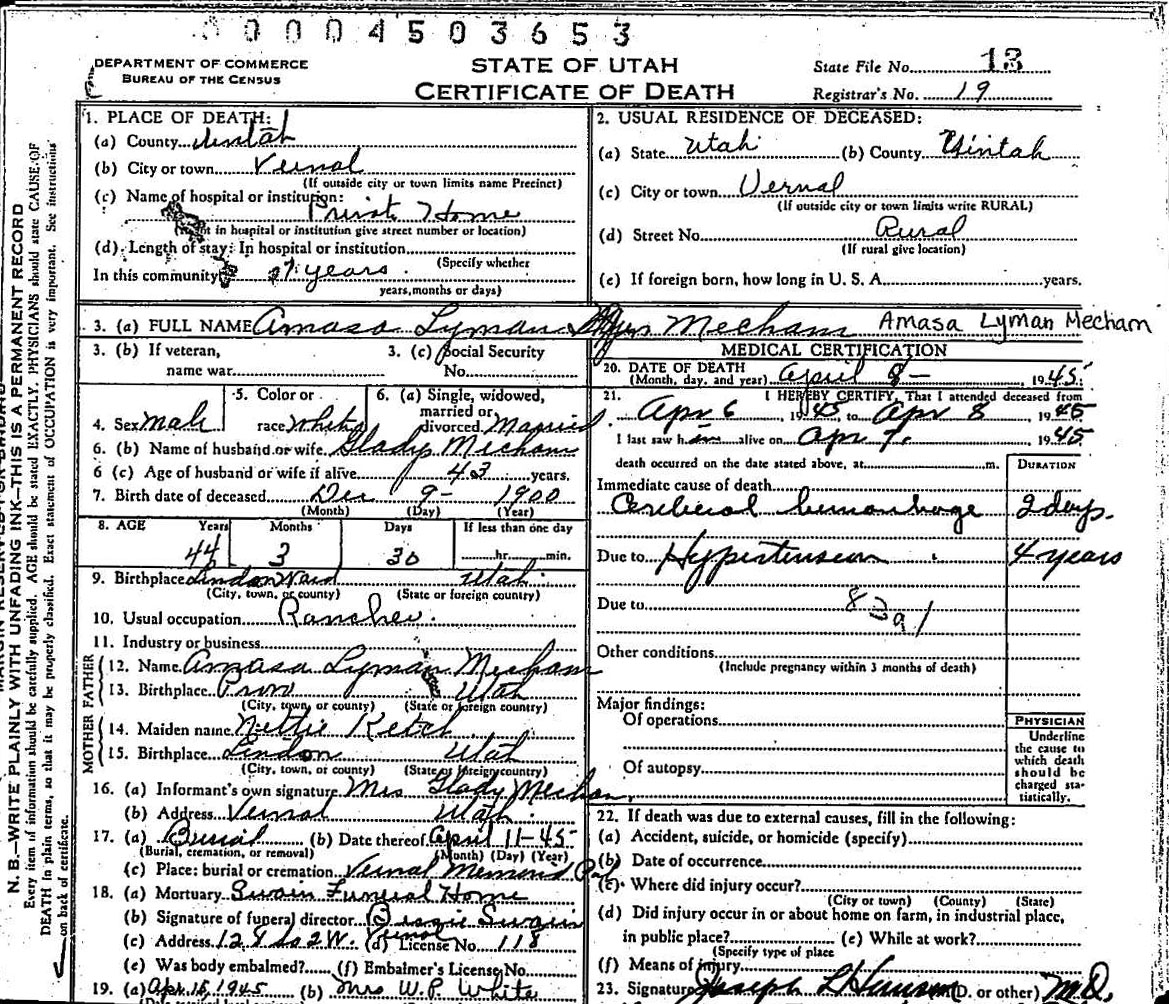 00004503653
DEPARTMENT OF COMMERCE
BUREAU OF THE CENSUS
STATE OF UTAH
CERTIFICATE OF DEATH
State File No. 13
Registrar's No. 19
N. B.—WRITE PLAINLY WITH UNFADING INK—THIS IS A PERMANENT RECORD
Every item of information should be carefully supplied. AGE should be stated EXACTLY. PHYSICIANS should state CAUSE OF
DEATH in plain terms, so that it may be properly classified. Exact statement of OCCUPATION is very important. See instructions
on back of certificate.
1. PLACE OF DEATH:
(a) County
(b) City or town Vernal
(If outside city or town limits name Precinct)
(c) Name of hospital or institution:
Private Home
in hospital or institution give street number or location)
(d) Length of stay: In hospital or institution
(Specify whether
In this community years
years, months or days)
2. USUAL RESIDENCE OF DECEASED:
(a) State Utah (b) County Uintah
(c) City or town Vernal
(If outside city or town limits write RURAL)
(d) Street No. Rural
(If rural give location)
(e) If foreign born, how long in U. S. A. years.
3. (a) FULL NAME Amasa Lyman Mecham Amasa Lyman Mecham
3. (b) If veteran,
name war
3. (c) Social Security
No.
4. Sex Male
5. Color or
race White
6. (a) Single, widowed,
married or
divorced Married
6. (b) Name of husband or wife Gladys Mecham
6 (c) Age of husband or wife if alive 43 years.
7. Birth date of deceased Dec 9- 1900
(Month) (Day) (Year)
8. AGE Years Months Days If less than one day
44 3 30 hr. min.
9. Birthplace Lindon Ward Utah
(City, town, or county) (State or foreign country)
10. Usual occupation Rancher.
11. Industry or business
FATHER
12. Name Amasa Lyman Mecham
13. Birthplace Utah
(City, town, or county) (State or foreign country)
MOTHER
14. Maiden name Nettie Ketch
15. Birthplace Lindon Utah
(City, town, or county) (State or foreign country)
16. (a) Informant's own signature Mrs Glady Mecham
(b) Address Vernal Utah
17. (a) Burial (b) Date thereof April 11-45
(Burial, cremation, or removal) (Month) (Day) (Year)
(c) Place: burial or cremation Vernal Memorial
18. (a) Mortuary Swain Funeral Home
(b) Signature of funeral director Bessie Swain
(c) Address (d) License No. 118
(e) Was body embalmed? (f) Embalmer's License No.
19. (a) 1945 (b) Mrs W.P. White
MEDICAL CERTIFICATION
20. DATE OF DEATH
(Month, day, and year) April 8- , 1945:
21. I HEREBY CERTIFY, That I attended deceased from
Apr 6 , 1945, to Apr 8 1945
I last saw him alive on Apr 7. , 1945.
death occurred on the date stated above, at m.
DURATION
Immediate cause of death
Cerebral hemorrhage 2 days.
Due to Hypertension 4 years
Due to
Other conditions
(Include pregnancy within 3 months of death)
Major findings:
Of operations
Of autopsy
PHYSICIAN
Underline
the cause to
which death
should be
charged sta-
tistically.
22. If death was due to external causes, fill in the following:
(a) Accident, suicide, or homicide (specify)
(b) Date of occurrence
(c) Where did injury occur?
(City or town) (County) (State)
(d) Did injury occur in or about home on farm, in industrial place,
in public place? (e) While at work?
(Specify type of place
(f) Means of injury
23. Signature Joseph L Hansen (D. or other) M.D.